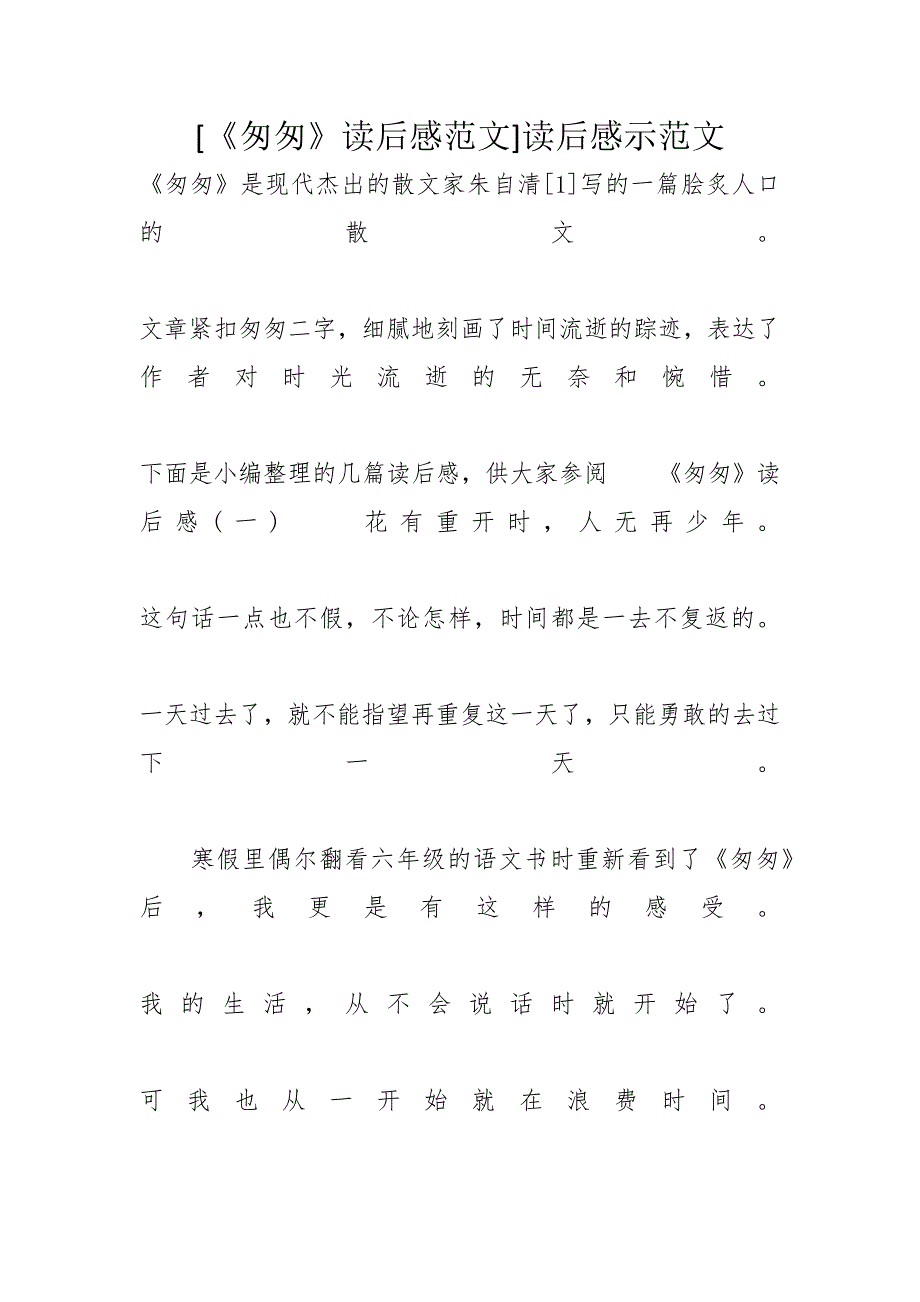 [《匆匆》读后感范文]读后感示范文
《匆匆》是现代杰出的散文家朱自清[1]写的一篇脍炙人口
的散文。
文章紧扣匆匆二字，细腻地刻画了时间流逝的踪迹，表达了
作者对时光流逝的无奈和惋惜。
下面是小编整理的几篇读后感，供大家参阅　　《匆匆》读
后感(一)　　花有重开时，人无再少年。
这句话一点也不假，不论怎样，时间都是一去不复返的。
一天过去了，就不能指望再重复这一天了，只能勇敢的去过
下一天。
寒假里偶尔翻看六年级的语文书时重新看到了《匆匆》
后，我更是有这样的感受。
我的生活，从不会说话时就开始了。
可我也从一开始就在浪费时间。